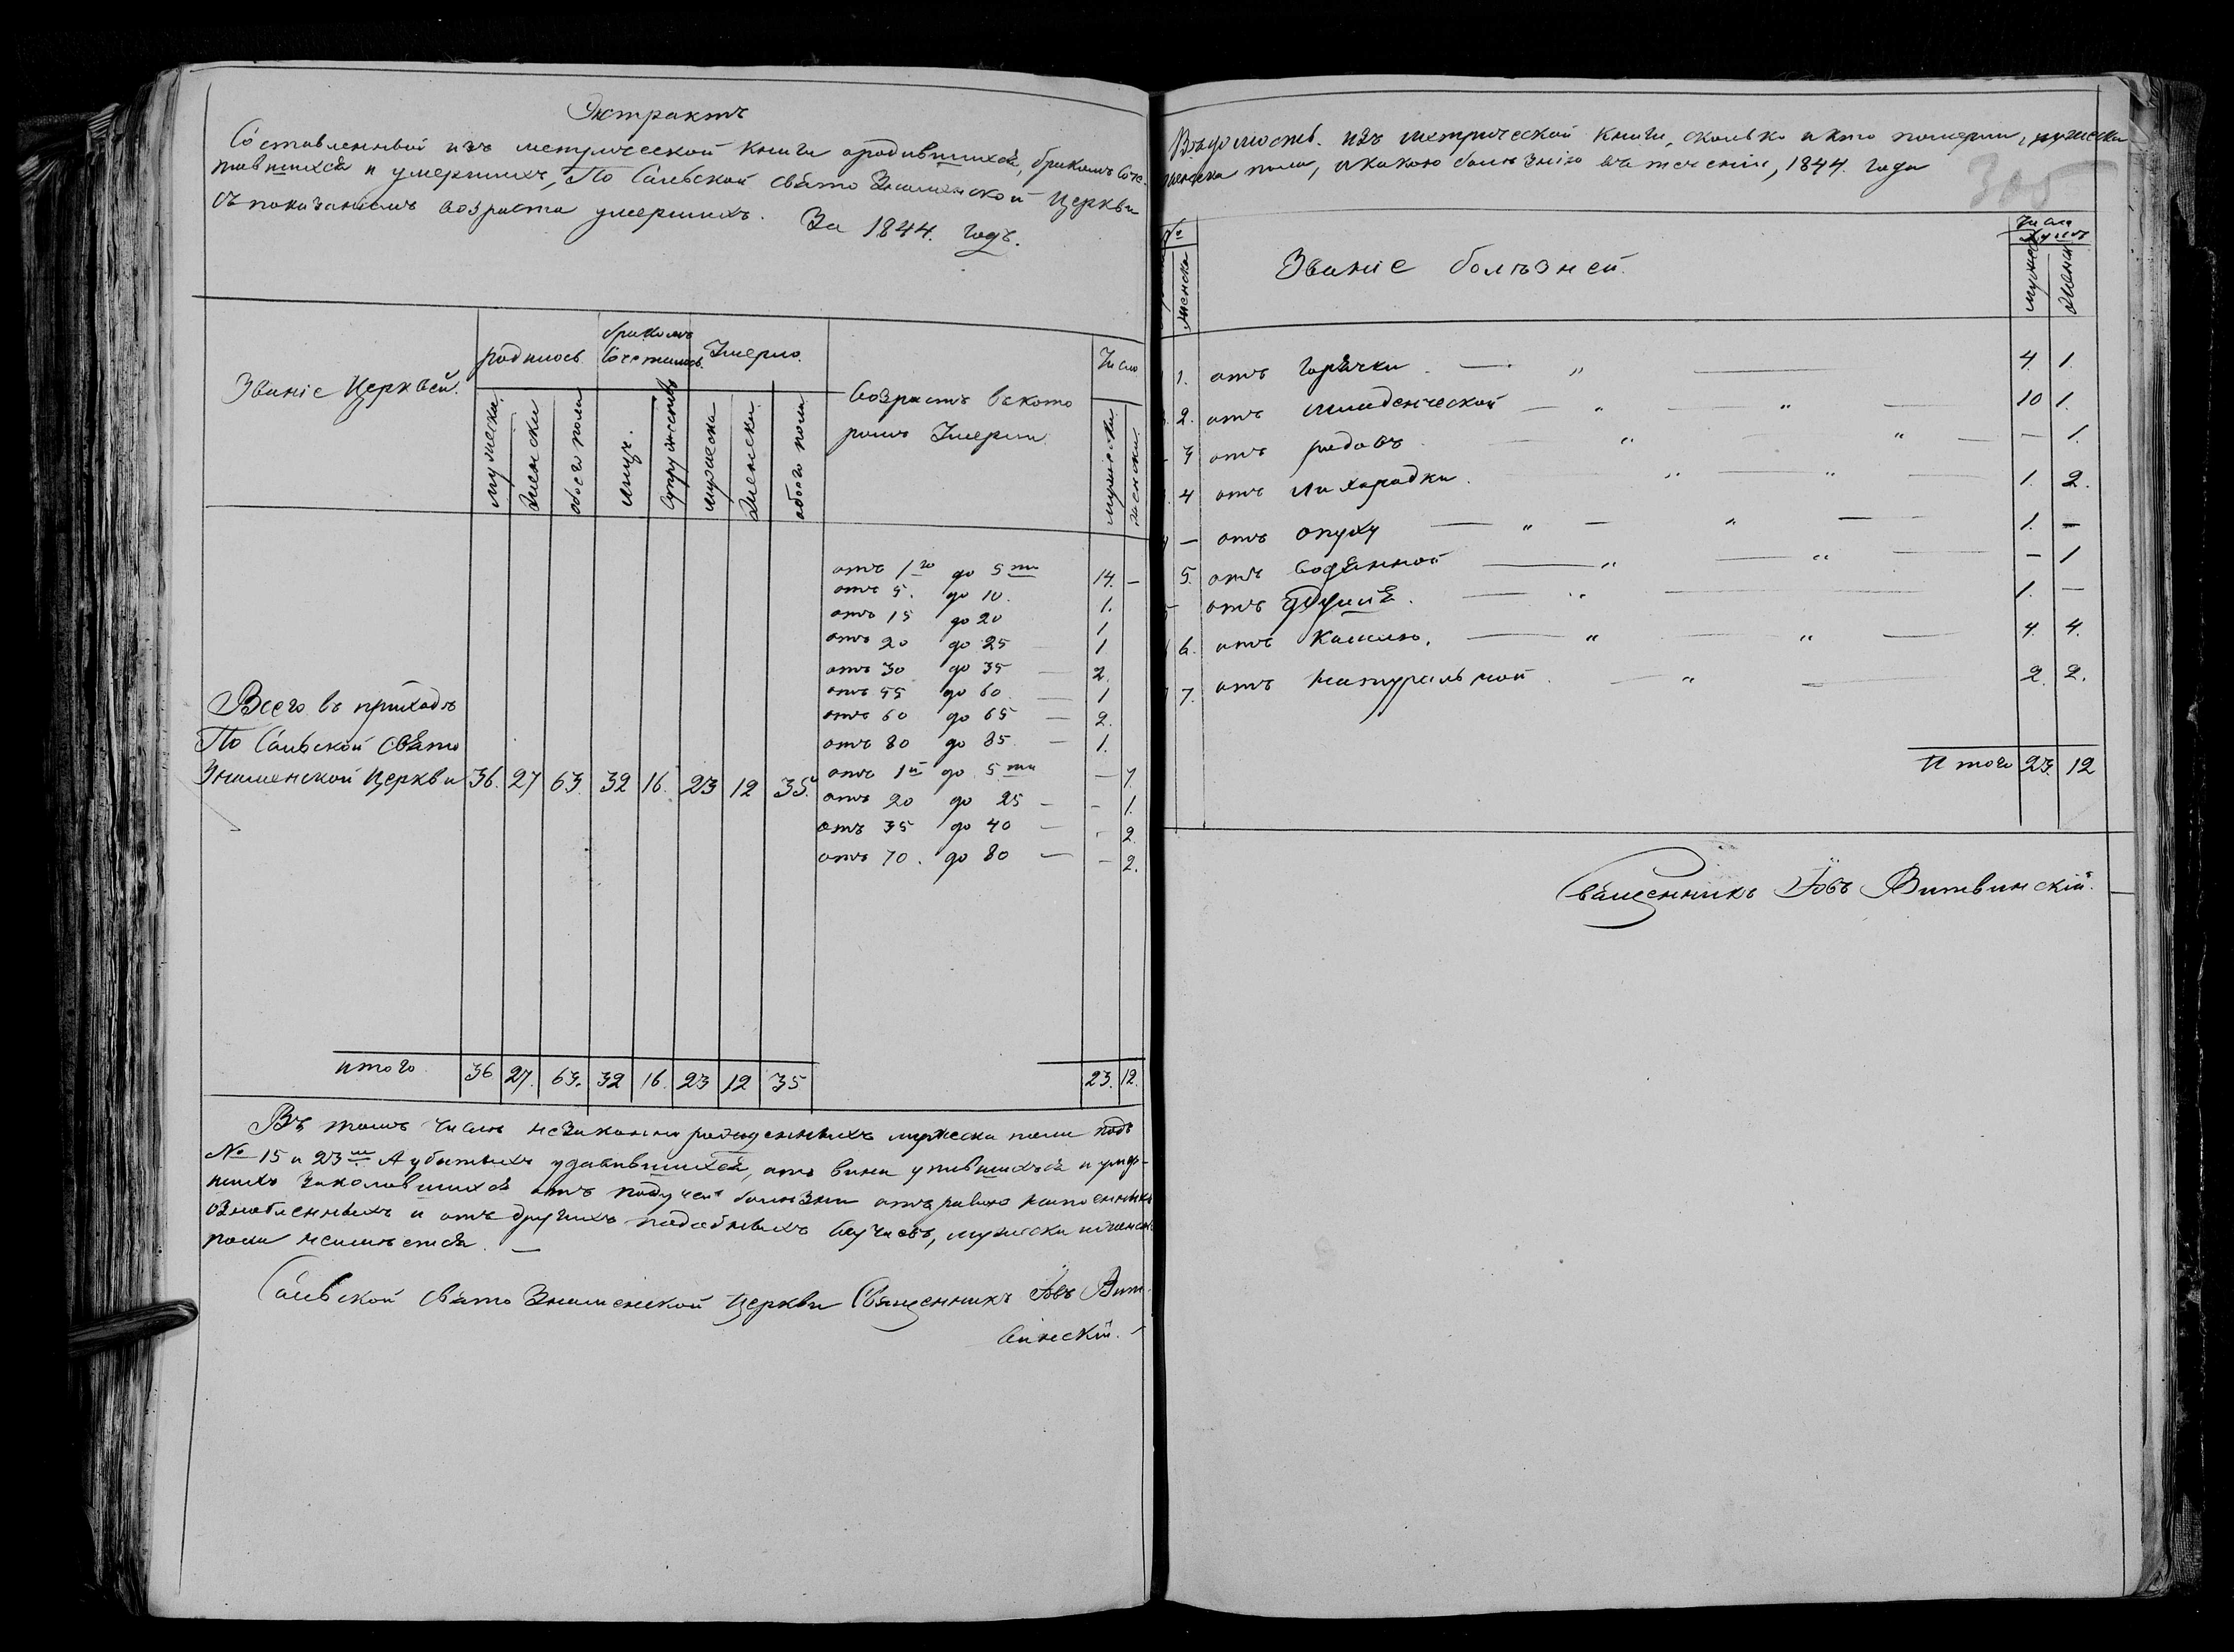 Экстрактъ
Составленный изъ метрической книги ородившихся, бракомъ соче-
тавшихся и умершихъ, По Сальской свято Знаменской Церкви
съ показаніемъ возраста умершихъ. За 1844. годъ.
Званіе Церквей.
родилось
бракомъ сочеталось.
Умерло.
Возрастъ въ кото
ромъ Умерли
Число
мужеска
женска
обоего пола
лицъ.
супружествъ
мужеска
женска
обоего пола
мужеска
женска
отъ 1го до 5ти 14. —
отъ 5. до 10. 1.
отъ 15 до 20 1
отъ 20 до 25 — 1
отъ 30 до 35 — 2.
отъ 55 до 60. — 1
отъ 60 до 65 — 2.
отъ 80 до 85. — 1.
отъ 1й до 5ти — 7.
отъ 20 до 25 — - 1.
отъ 35 до 40 — - 2
отъ 70. до 80 — - 2.
Всего въ приходѣ
По Сальской Свято
Знаменской Церкви 36. 27 63. 32 16. 23 12 35.
итого 36 27. 63. 32 16. 23 12 35 23. 12.
Въ томъ числѣ незаконно рожденныхъ мужеска пола подъ
№ 15 и 23м. А убитыхъ удавившихся, отъ вина упившихся и
заколовшихся отъ падучей болѣзни
ознобленныхъ и отъ другихъ подобныхъ случаевъ, мужеска и женска
пола неимѣется. —
Сальской Свято Знаменской Церкви Священникъ Іовъ Вит-
винскій.
Вѣдомость. изъ метрической книги, сколько и кто померли, мужеска
женска пола, и какою болѣзнію въ теченіи, 1844. года
305
№
женска
Званіе болѣзней.
Число душъ
мужеск
женск
1. отъ горячки. — „ — 4. 1.
2. отъ младенческой — „ — „ — 10 1.
3 отъ родовъ. — „ — „ — — 1.
4 отъ лихорадки. — „ — „ — 1. 2.
— отъ опуху — „ — „ — 1. —
5. отъ водянной — „ — „ — — 1
отъ удушья. — „ — 1. —
6. отъ кашлю. — „ — „ — 4. 4.
7. отъ натуральной. — „ — 2. 2.
Итого 23. 12
Священникъ Іовъ Витвинскій.